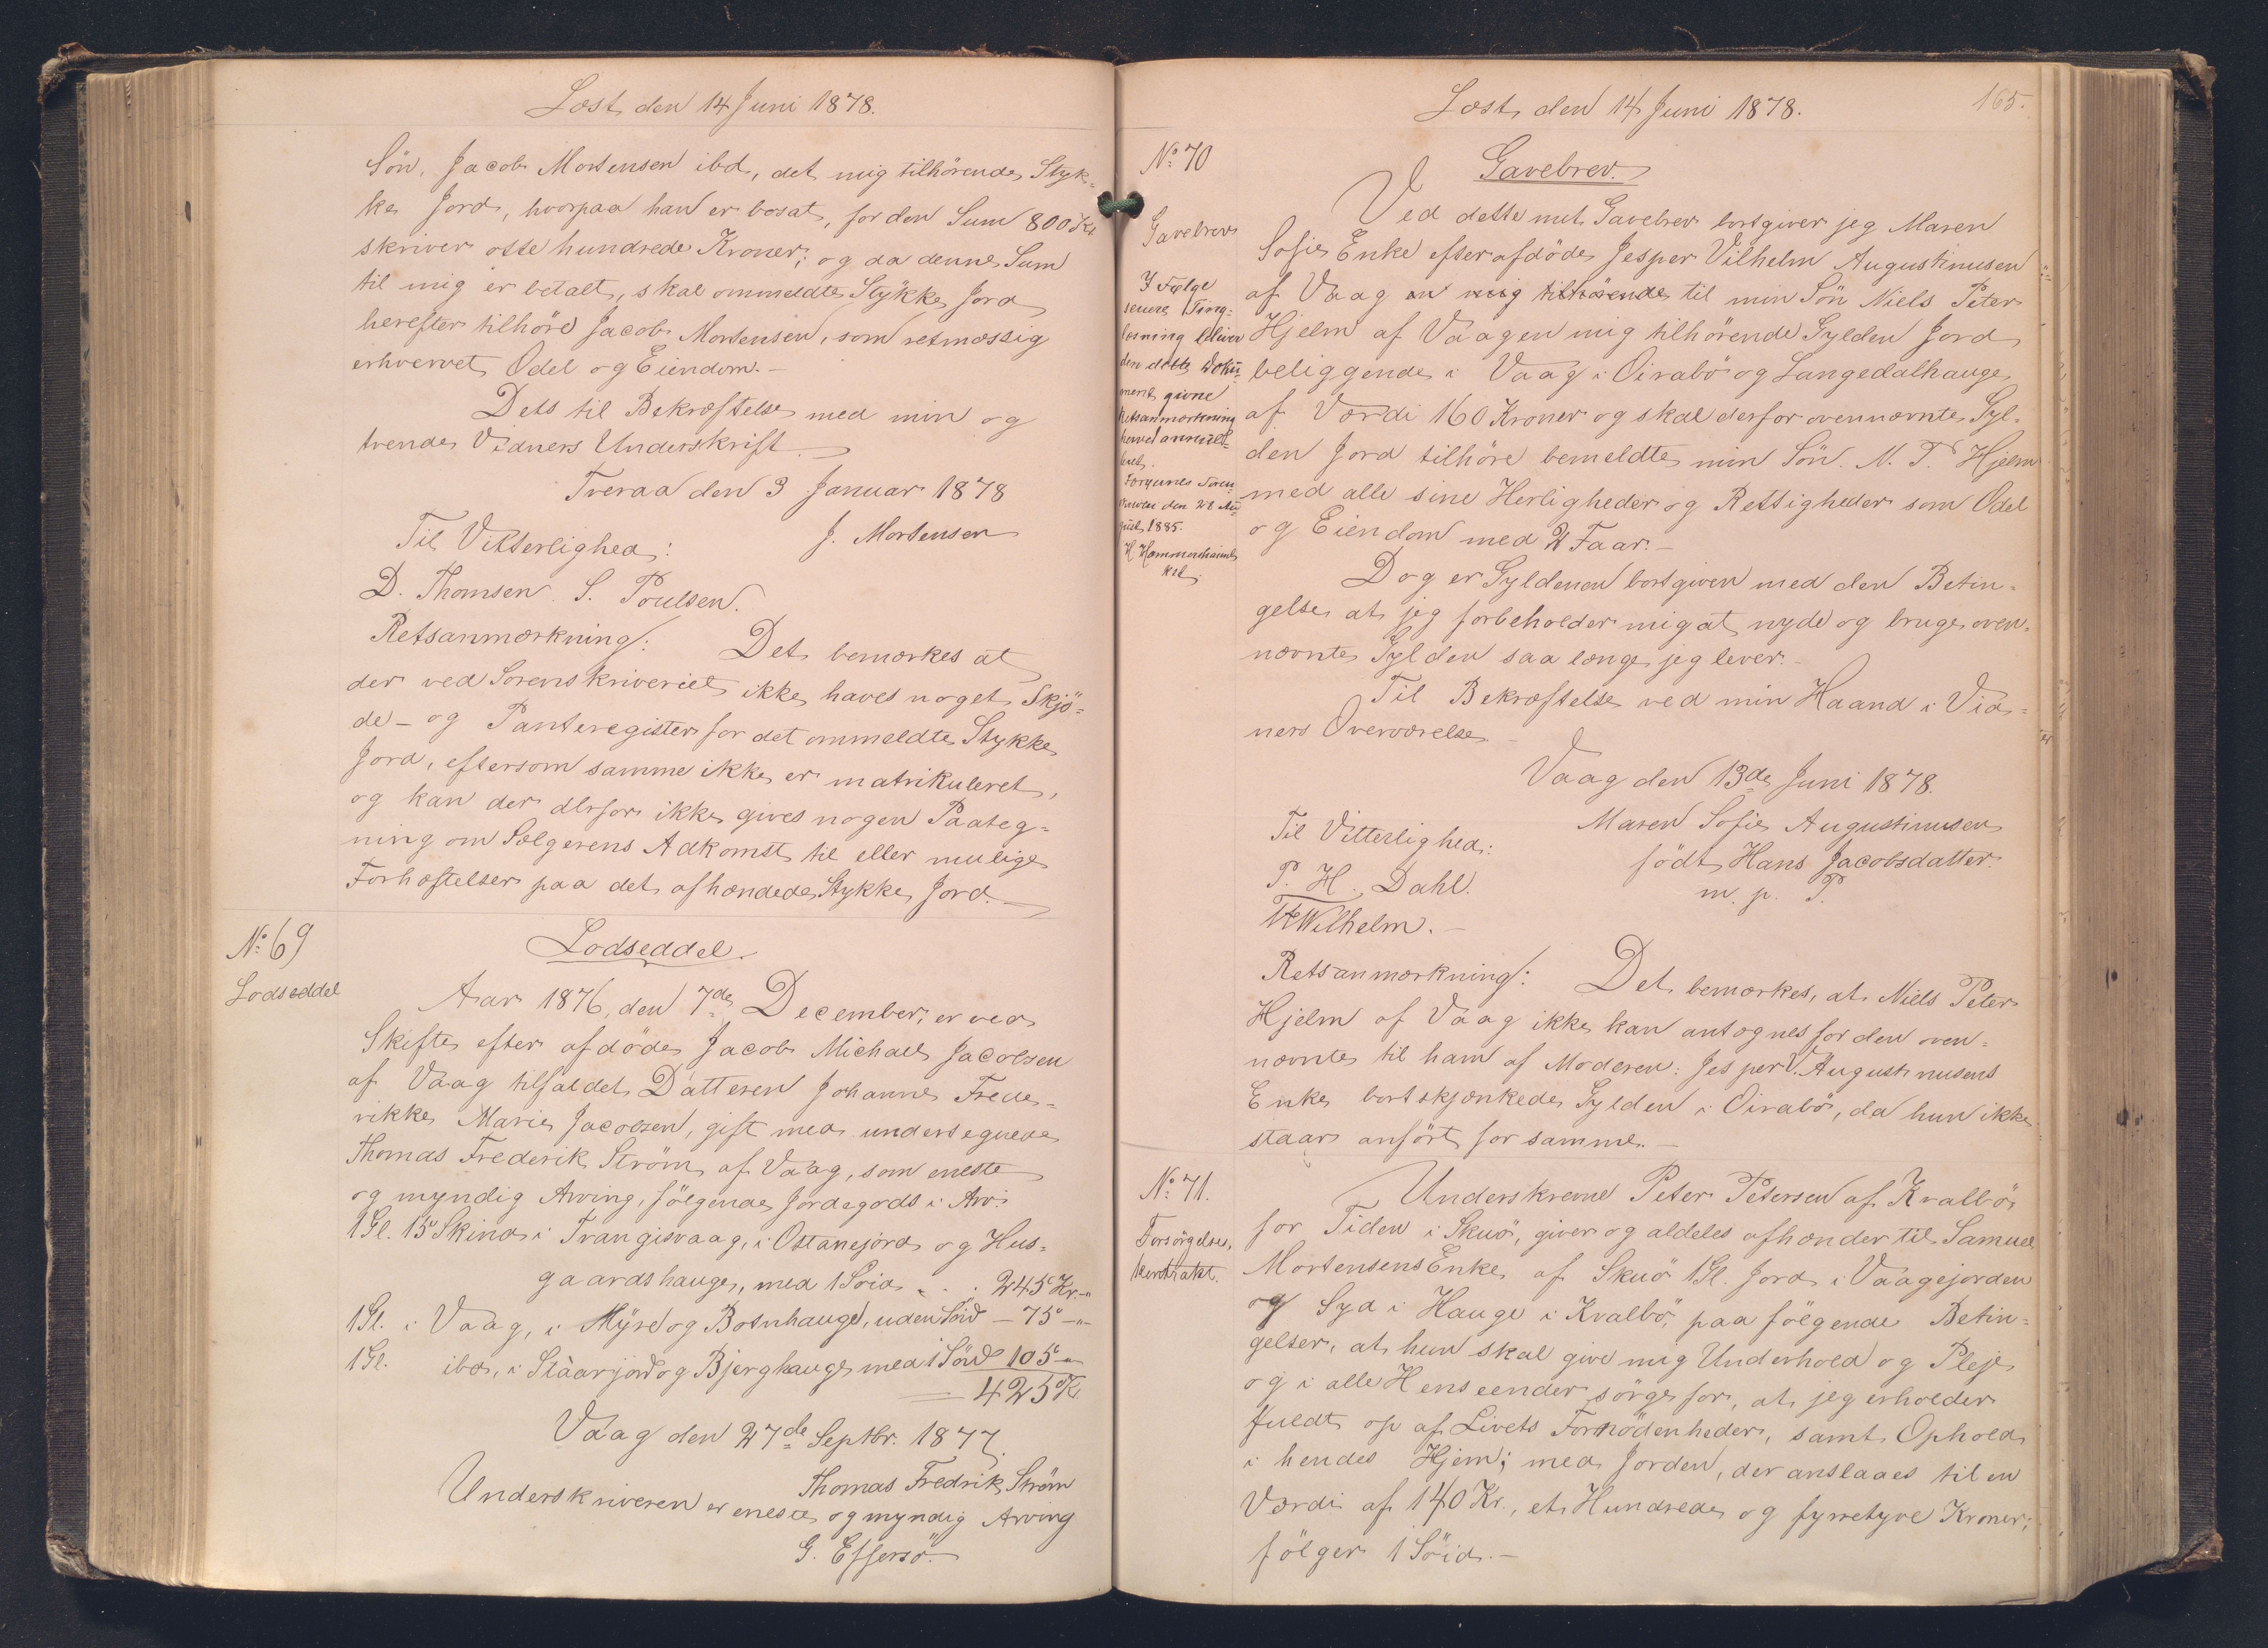 Læst den 14 Juni 1878.
Sön, Jacob Mortensen ibd, det mig tilhörende Styk-
ke Jord, hvorpaa han er bosat, for den Sum 800 Kr
skriver otte hundrede Kroner; og da denne Sum
til mig er betalt, skal ommeldte Stykke Jord
herefter tilhöre Jacob Mortensen, som retmæssig
erhvervet Odel og Eiendom.-
Dets til Bekræftelse med min og
tvende Vidners Underskrift.-
Tveraa den 3 Januar 1878
J. Mortensen
Til Vitterlighed:
D. Thomsen. S. Poulsen.
Retsanmærkning: Det bemærkes at
der ved Sorenskriveriet ikke haves noget Skjö-
de- og Panteregister for det ommeldte Stykke
Jord, eftersom samme ikke er matrikuleret,
og kan der derfor ikke gives nogen Paateg-
ning om Sælgerens Adkomst til eller mulige
Forhæftelser paa det afhændede Stykke Jord.-
No 69
Lodseddel
Lodseddel.
Aar 1876, den 7de December, er ved
Skifte efter afdöde Jacob Michael Jacobsen
af Vaag tilfaldet Datteren Johanne Frede-
rikke Marie Jacobsen, gift med undertegnede
Thomas Frederik Ström af Vaag, som eneste
og myndig Arving, fölgende Jordegods i Arv:
1 Gl. 15 Skind i Trangisvaag, i Ostanejord og Hus-
gaardshauge, med 1 Soid . . 245 Kr. "
1 Gl. i Vaag, i Myre og Botnhauge, uden Söid - 75 - "
1 Gl. ibd, i Staarjord og Bjerghauge med 1 Söid 105 "
425 Kr
Vaag den 27de Septbr. 1877.
Thomas Fredrik Ström
Underskriveren er eneste og myndig Arving
G. Effersö.
Læst den 14 Juni 1878.
165.
No 70
Gavebrev
I Følge
senere Ting-
læsning bliver
den dette Doku-
ment givne
Retsanmærkning
herved annulle-
ret.
Færøernes Soren-
skriveri den 28 Au-
gust 1885.
H Hammershaimb
Kst
Gavebrev.
Ved dette mit Gavebrev bortgiver jeg Maren
Sofie Enke efter afdöde Jesper Vilhelm Augustinusen
af Vaag en mig tilhörende til min Sön Niels Peter
Hjelm af Vaag en mig tilhörende Gylden Jord
beliggende i Vaag i Oirabö og Langedalhauge
af Værdi 160 Kroner og skal derfor ovennævnte Gyl-
den Jord tilhöre bemeldte min Sön N. P. Hjelm
med alle sine Herligheder og Rettigheder som Odel
og Eiendom med 2 Faar.-
Dog er Gyldenen bortgiven med den Betin-
gelse at jeg forbeholder mig at nyde og bruge oven-
nævnte Gylden saa længe jeg lever.-
Til Bekræftelse ved min Haand i Vid-
ners Overværelse.-
Vaag den 13de Juni 1878.
Maren Sofie Augustinusen
födt Hans Jacobsdatter
m. p. P.
Til Vitterlighed:
P. H. Dahl.
Wilhelm.-
Retsanmærkning: Det bemærkes, at Niels Peter
Hjelm af Vaag ikke kan antegnes for den oven-
nævnte til ham af Moderen: Jesper V. Augustinusens
Enke bortskjænkede Gylden i Oirabö, da hun ikke
staar anfört for samme.-
No 71.
Forsörgelses-
kontrakt.
Underskrevne Peter Petersen af Kvalbö,
for Tiden i Skuö, giver og aldeles afhænder til Samuel
Mortensens Enke af Skuö 1 Gl. Jord i Vaagejorden
og Syd i Hauge i Kvalbö, paa fölgende Betin-
gelser, at hun skal give mig Underhold og Pleje
og i alle Henseender sörge for, at jeg erholder
fuldt op af Livets Fornödenheder, samt Ophold
i hendes Hjem; med Jorden, der anslaaes til en
Værdi af 140 Kr., et Hundrede og fyrretyve Kroner,
fölger 1 Söid.-